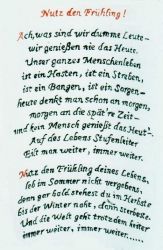 Nutz den Frühling!
Ach, was sind wir dumme Leute -
wir genießen nie das Heute.
Unser ganzes Menschenleben
ist ein Hasten, ist ein Streben,
ist ein Bangen, ist ein Sorgen -
heute denkt man schon an morgen,
morgen an die spät're Zeit -
und kein Mensch genießt das Heut'-
Auf des Lebens Stufenleiter
Eilt man weiter, immer weiter.
Nutz den Frühling deines Lebens,
leb im Sommer nicht vergebens,
denn gar bald stehst du im Herbste
bis der Winter naht, dann sterbste.
Und die Welt geht trotzdem heiter
immer weiter, immer weiter.....